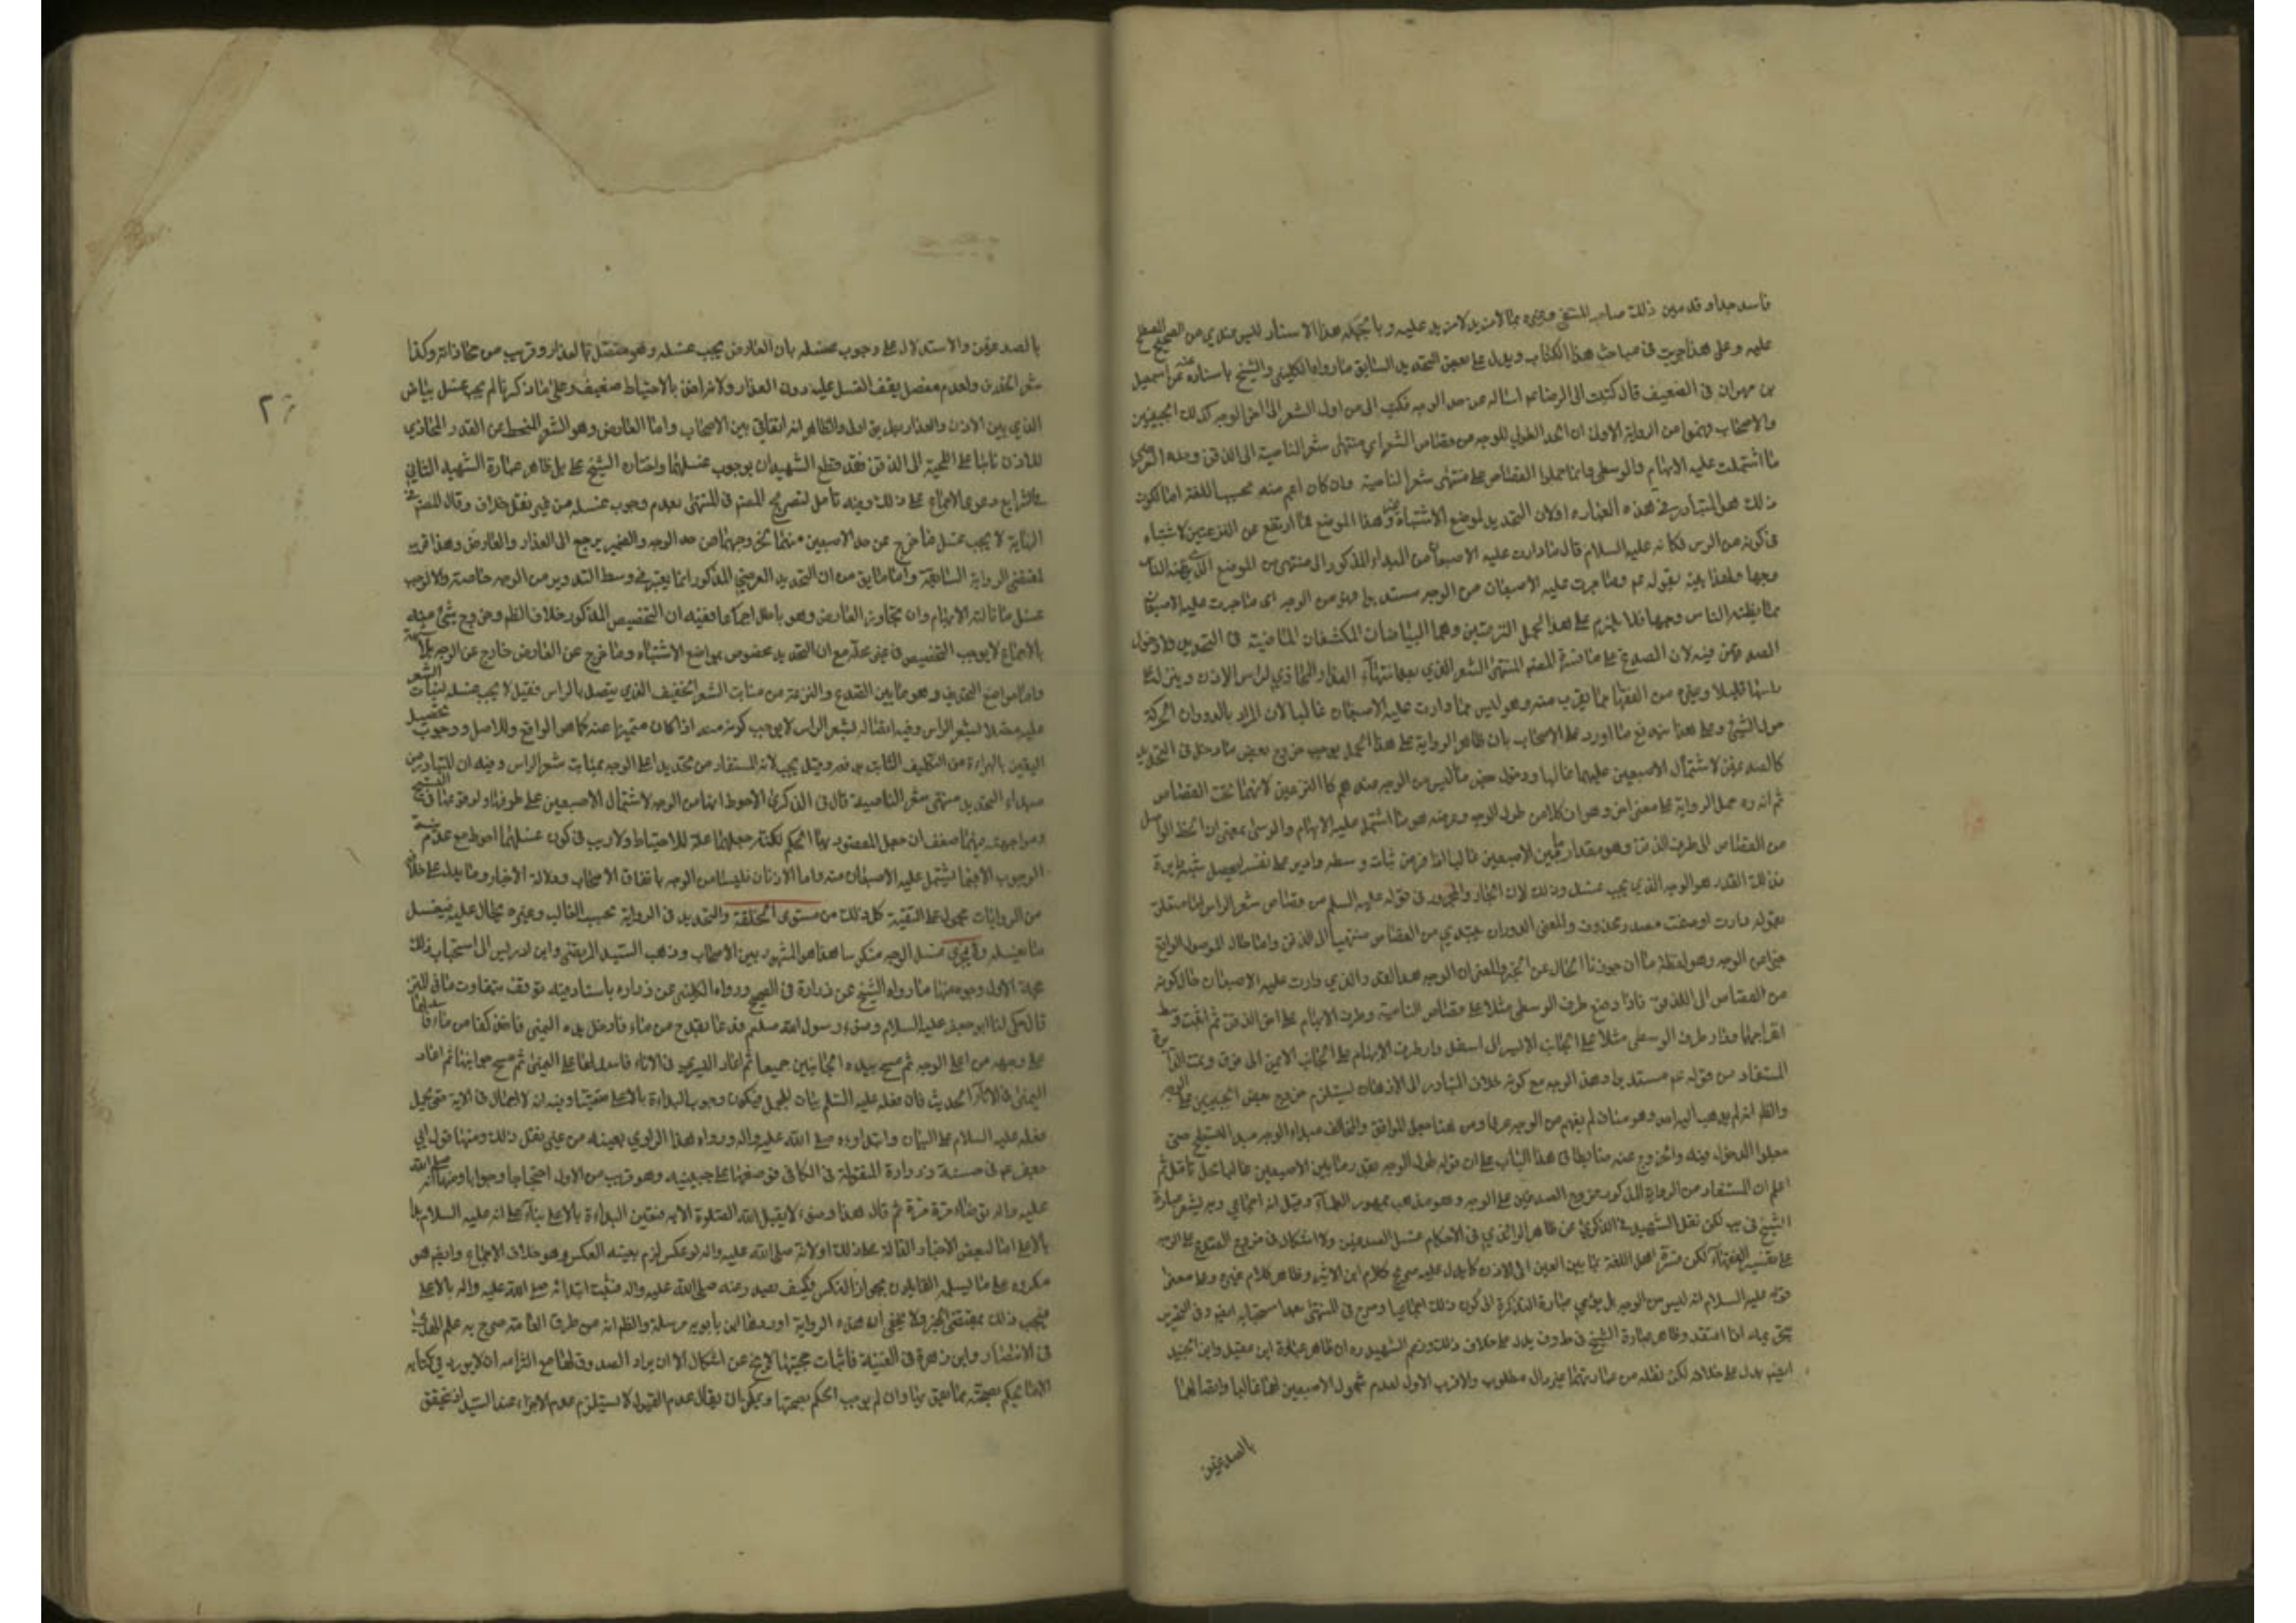 فاسد جدا وقد بين ذلك صاحب المنتقى وغيره بما لا مزيد لا مزيد عليه وبالجملة هذا الاسناد ليس عندي من الصحيح المصطلح
عليه وعلى هذا جريت في مباحث هذا الكتاب ويدل على بعض التحديد السابق ما رواه الكليني والشيخ باسناده عنه عن اسمعيل
بن مهران في الضعيف قال كتبت الى الرضا عم اساله عن حد الوجه فكتب الي من اول الشعر الى اخر الوجه كذلك الجبينين
والاصحاب فهموا من الرواية الاولى ان الحد الطولي للوجه من قصاص الشعر اي منتهى شعر الناصية الى الذقن وحده العرضي
ما اشتملت عليه الابهام والوسطى وانما حملوا القصاص على منتهى شعر الناصية وان كان اعم منه بحسب اللغة اما لكون
ذلك هو المتبادر في هذه العبارة او لان التحديد لموضع الاشتباه وهذا الموضع مما ارتفع عن النزعتين لا شتباه
في كونه من الراس فكانه عليه السلام قال ما دارت عليه الاصبعان من المبداء المذكور الى منتهى من الموضع الذي يظنه الناس
وجها ولهذا بينه بقوله عم وما جرت عليه الاصبعان من الوجه مستديرا فهو من الوجه اى ما جرت عليه الاصبعان
مما يظنه الناس وجها فلا يلزم على هذا الحمل النزعتين وهما البياضان المكتنفان للناصية في التحديد ولا دخول
الصدغين فيه لان الصدغ على ما فسره المصنف المنتهى الشعر الذي بعد انتهاء العذار المحاذي لراس الاذن وينزل عن
راسها قليلا وغيره من الفقهاء بما يقرب منه وهو ليس مما دارت عليه الاصبعان غالبا لان المراد بالدوران الحركة
حول الشيء وعلى هذا يندفع ما اورد على الاصحاب بان ظاهر الرواية على هذا الحمل يوجب خروج بعض ما دخل في التحديد
كالصدغين لاشتمال الاصبعين عليهما غالبا ودخول بعض ما ليس من الوجه عندهم كالنزعتين لانهما تحت القصاص
ثم انه ره حمل الرواية على معنى اخر وهو ان كلا من طول الوجه وعرضه هو ما اشتمل عليه الابهام والوسطى بمعنى ان الخط الواصل
من القصاص الى طرف الذقن وهو مقدار ما بين الاصبعين غالبا اذا فرض ثبات وسطه وادير على نفسه ليحصل شبه دايرة
فذلك القدر هو الوجه الذي يجب غسله وذلك لان الجار والمجرور في قوله عليه السلم من قصاص شعر الراس اما متعلق
بقوله دارت او صفت مصدر محذوف والمعنى الدوران يبتدي من القصاص منتهيا الى الذقن واما حال الموصول الواقع
خبرا عن الوجه وهو لفظة ما ان جوزنا الحال عن الخبر والمعنى ان الوجه هو القدر الذي دارت عليه الاصبعان حال كونه
من القصاص الى الذقن فاذا وضع طرف الوسطى مثلا على قصاص الناصية وطرف الابهام على اخر الذقن ثم اثبت وسط
انفراجهما ودار طرف الوسطى مثلا على الجانب الايسر الى اسفل ودار طرف الابهام على الجانب الايمن الى فوق وتمت الدايرة
المستفاد من قوله عم مستديرا وهذا الوجه مع كونه خلاف المتبادر الى الاذهان يستلزم خروج بعض الجبينين عن الوجه
والظ انه لم يذهب اليه احد وهو مناف لم يفهم من الوجه عرفا ومن هنا جعل الموافق والمخالف مبداء الوجه مبدا التسطيح حتى
جعلوا الدخول فيه والخروج عنه ضابطا في هذا الباب على ان قوله طول الوجه بقدر ما بين الاصبعين غالبا محل تامل ثم
اعلم ان المستفاد من الرواية المذكورة خروج الصدغين عن الوجه وهو مذهب جمهور العلماء وقيل انه اجماعي وبه يشعر عبارة
الشيخ في يب لكن نقل الشهيد في الذكرى عن ظاهر الراوندي في الاحكام غسل الصدغين ولا اشكال في خروج الصدغ عن الوجه
على تفسير الفقهاء لكن فسره اهل اللغة بما بين العين الى الاذن كما يدل عليه صريح كلام ابن الاثير وظاهر كلام غيره وعلى معنى
قوله عليه السلام انه ليس من الوجه بل يدعي عبارة التذكرة الى كون ذلك اجماعيا وصرح في المنتهى بعدم استحبابه ايضا وفي التحرير
حتى يحرم اذا اعتقد وظاهر عبارة الشيخ في ف يدل على خلاف ذلك وزعم الشهيد ره ان ظاهر عبارة ابن عقيل وابن الجنيد
ايضا يدل على خلافه لكن نقله من عبارتهما غير دال مطلوب والاقرب الاول لعدم شمول الاصبعين لهما غالبا واتصالهما
بالصدغين
٢٣
بالصدغين والاستدلال على وجوب غسله بان العارض يجب غسله وهو متصل بالعذار وقريب من محاذاته وكذا
شعر الخدين ولعدم مفصل يقف الغسل عليه دون العذار ولامراض بالاحتياط ضعيف وعلى ما ذكرنا لم يجب غسل بياض
الذي بين الاذن والعذار بطريق اولى والظاهر انه اتفاقي بين الاصحاب واما العارض وهو الشعر المنحط عن القدر المحاذي
للاذن نابتا على اللحية الى الذقن فقد قطع الشهيدان بوجوب غسلهما واختاره الشيخ على بل ظاهر عبارة الشهيد الثاني
في شرح الشرايع دعوى الاجماع على ذلك وفيه تامل لتصريح المصنف في المنتهى بعدم وجوب غسله من غير نقل خلاف وقال المصنف في
النهاية لا يجب غسل ما خرج عن حد الاصبعين منهما لخروجهما عن حد الوجه والضمير يرجع الى العذار والعارض وهذا قريب
لمقتضى الرواية السابقة واما ما يق من ان التحديد العرضي المذكور انما يعتبر في وسط التدوير من الوجه خاصة والا لوجب
غسل ما نالته الابهام وان تجاوز العارض وهو باطل اجماعا ففيه ان التخصيص المذكور خلاف الظ وخروج شيء منه
بالاجماع لا يوجب التخصيص في غير محله مع ان التحديد مخصوص بمواضع الاشتباه وما خرج عن العارض خارج عن الوجه بلا شبهة
واما مواضع التحذيف وهو ما بين الصدغ والنزعة من منابت الشعر الخفيف الذي يتصل بالراس فقيل لا يجب غسله لنبات الشعر
عليه متصلا بشعر الراس وفيه اتصاله بشعر الراس لا يوجب كونه منه اذا كان متميزا عنه كما هو الواقع وللاصل ووجوب تحصيل
اليقين بالبراءة من التكليف الثابت وقيل يجب لانه المستفاد من تحديد اعلى الوجه بمنابت شعر الراس وفيه ان المتبادر من
مبداء التحديد منتهى شعر الناصية قال في الذكرى الاحوط انها من الوجه لاشتمال الاصبعين على طرفها ولوقوعها في التسطيح
ومواجهته وفيهما ضعف ان جعل المقصود بهما الحكم لكنه جعلهما علة للاحتياط ولا ريب في كون غسلهما احوط مع عدم
الوجوب الا فيما يشتمل عليه الاصبعان منه واما الاذنان فليستا من الوجه باتفاق الاصحاب ودلالة الاخبار وما يدل على خلافه
من الروايات محمول على التقية كل ذلك من مستوي الخلقة والتحديد في الرواية بحسب الغالب وغيره يحال عليه فيغسل
ما يغسله ولا يجزي غسل الوجه منكوسا هذا هو المشهور بين الاصحاب وذهب السيد المرتضى وابن ادريس الى استحباب ذلك
حجة الاول وجوه منها ما رواه الشيخ عن زرارة في الصحيح ورواه الكليني عن زراره باسناد فيه توقف بتفاوت ما في المتن
قال حكى لنا ابو جعفر عليه السلام وضوء رسول الله صلعم فدعا بقدح من ماء فادخل يده اليمنى فاخذ كفا من ماء فاسدلها
على وجهه من اعلى الوجه ثم مسح بيده الجانبين جميعا ثم اعاد اليسرى في الاناء فاسدلها على اليمنى ثم مسح جوانبها ثم اعاد
اليمنى في الاناء الحديث فان فعله عليه السلم بيان للمجمل فيكون وجوب البداءة بالاعلى متعينا وفيه انه لا اجمال في الاية حتى يحمل
فعله عليه السلام على البيان وابتداؤه صلى الله عليه واله ورواه هذا الراوي بعينه من غير نقل ذلك ومنها قول ابي
جعفر عم في حسنة زرارة المنقولة في الكافي فوضعها على جبينه وهو قريب من الاول احتجاجا وجوابا ومنها انه صلى الله
عليه واله توضاء مرة مرة ثم قال هذا وضوء لا يقبل الله الصلوة الا به فتعين البداءة بالاعلى بناء على انه عليه السلام بدأ
بالاعلى اما لبعض الاخبار الدالة على ذلك او لانه صلى الله عليه واله لو عكس لزم تعينه العكس وهو خلاف الاجماع وايضا هو
مكروه على ما يسلمه القايلون بجواز النكس فكيف يصدر عنه صلى الله عليه واله فثبت ابتدائه صلى الله عليه واله بالاعلى
فيجب ذلك بمقتضى الخبر ولا يخفى ان هذه الرواية اوردها ابن بابويه مرسلة والظ انه من طرق العامة صرح به علم الهدى
في الانتصار وابن زهرة في الغنية فاثبات حجيتها لا يخ عن اشكال الا ان ايراد الصدوق لها مع التزامه ان لا يورد في كتابه
الا ما يحكم بصحته مما يعتق بها وان لم يوجب الحكم بصحتها ويمكن ان يقال عدم القبول لا يستلزم عدم الاجزاء عند السيد اذ تحقق